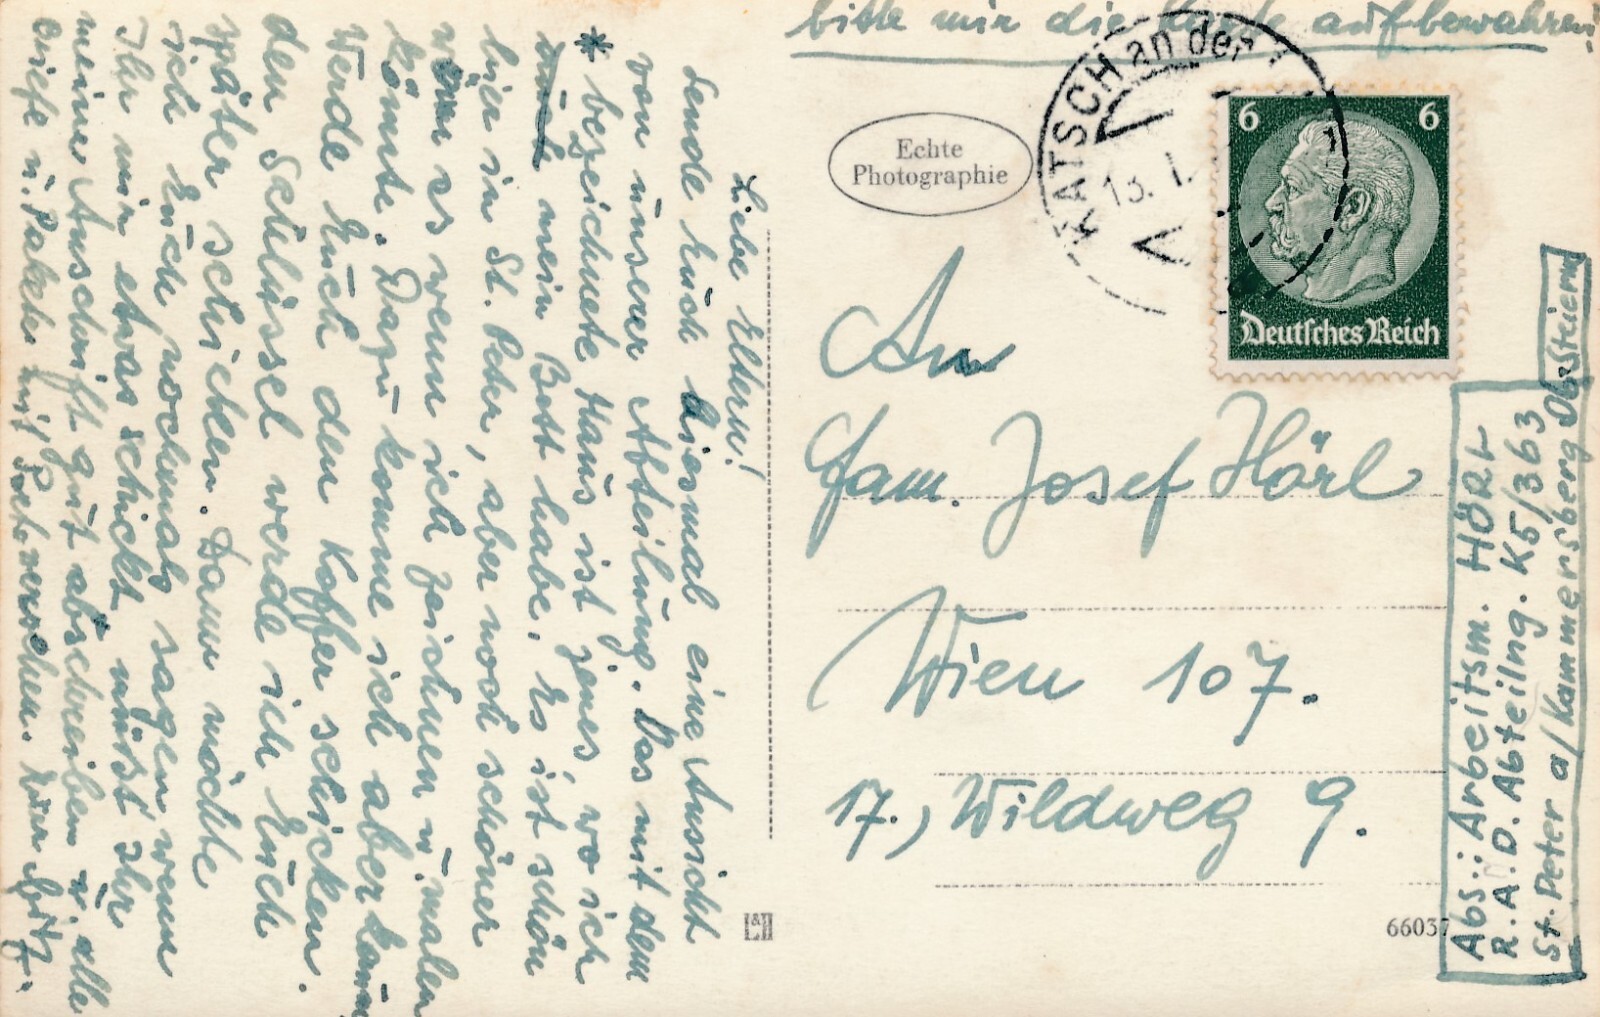 bitte mir die Karte aufbewahren!
Echte
Photographie
KATSCH an der
13. I.
6 6
Deutsches Reich
An
Fam. Josef Hörl
Wien 107.
17., Wildweg 9.
66037
Abs.: Arbeitsm. HÖRL
R.A.D. Abteilng. K5/363
St. Peter a/Kammersberg Obersteierm
Liebe Eltern!
Sende Euch diesmal eine Ansicht
von unserer Abteilung. Das mit dem
* bezeichnete Haus ist jenes, wo ich
auch mein Bett habe. Es ist schön
hier in St. Peter, aber noch schöner
wär es wenn ich zeichnen u. malen
könnte. Dazu komme ich aber kaum
Werde Euch den Koffer schicken.
den Schlüssel werde ich Euch
später schicken. Dann möchte
ich Euch nochmals sagen wenn
Ihr mir etwas schickt müsst Ihr
meine Anschrift gut abschreiben u. alle
Briefe u. Pakete mit versehen. Euer